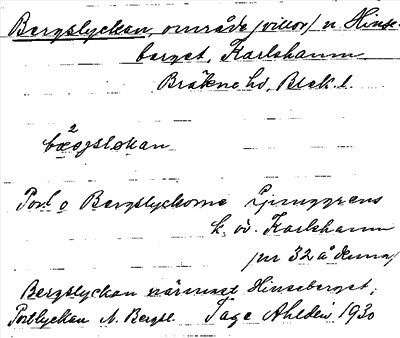 Bergslyckan, område (villor) n. Hinse-
berget, Karlshamn
Bräkne hd, Blek. l.
2
bæ̀gsløkan
Port o Bergslyckorna Ljunggrens
k. öv. Karlshamn
nr 32 å denna)
Bergslyckan närmast Hinseberget,
Portlyckan N. Bergsl. Tage Ahldén 1930